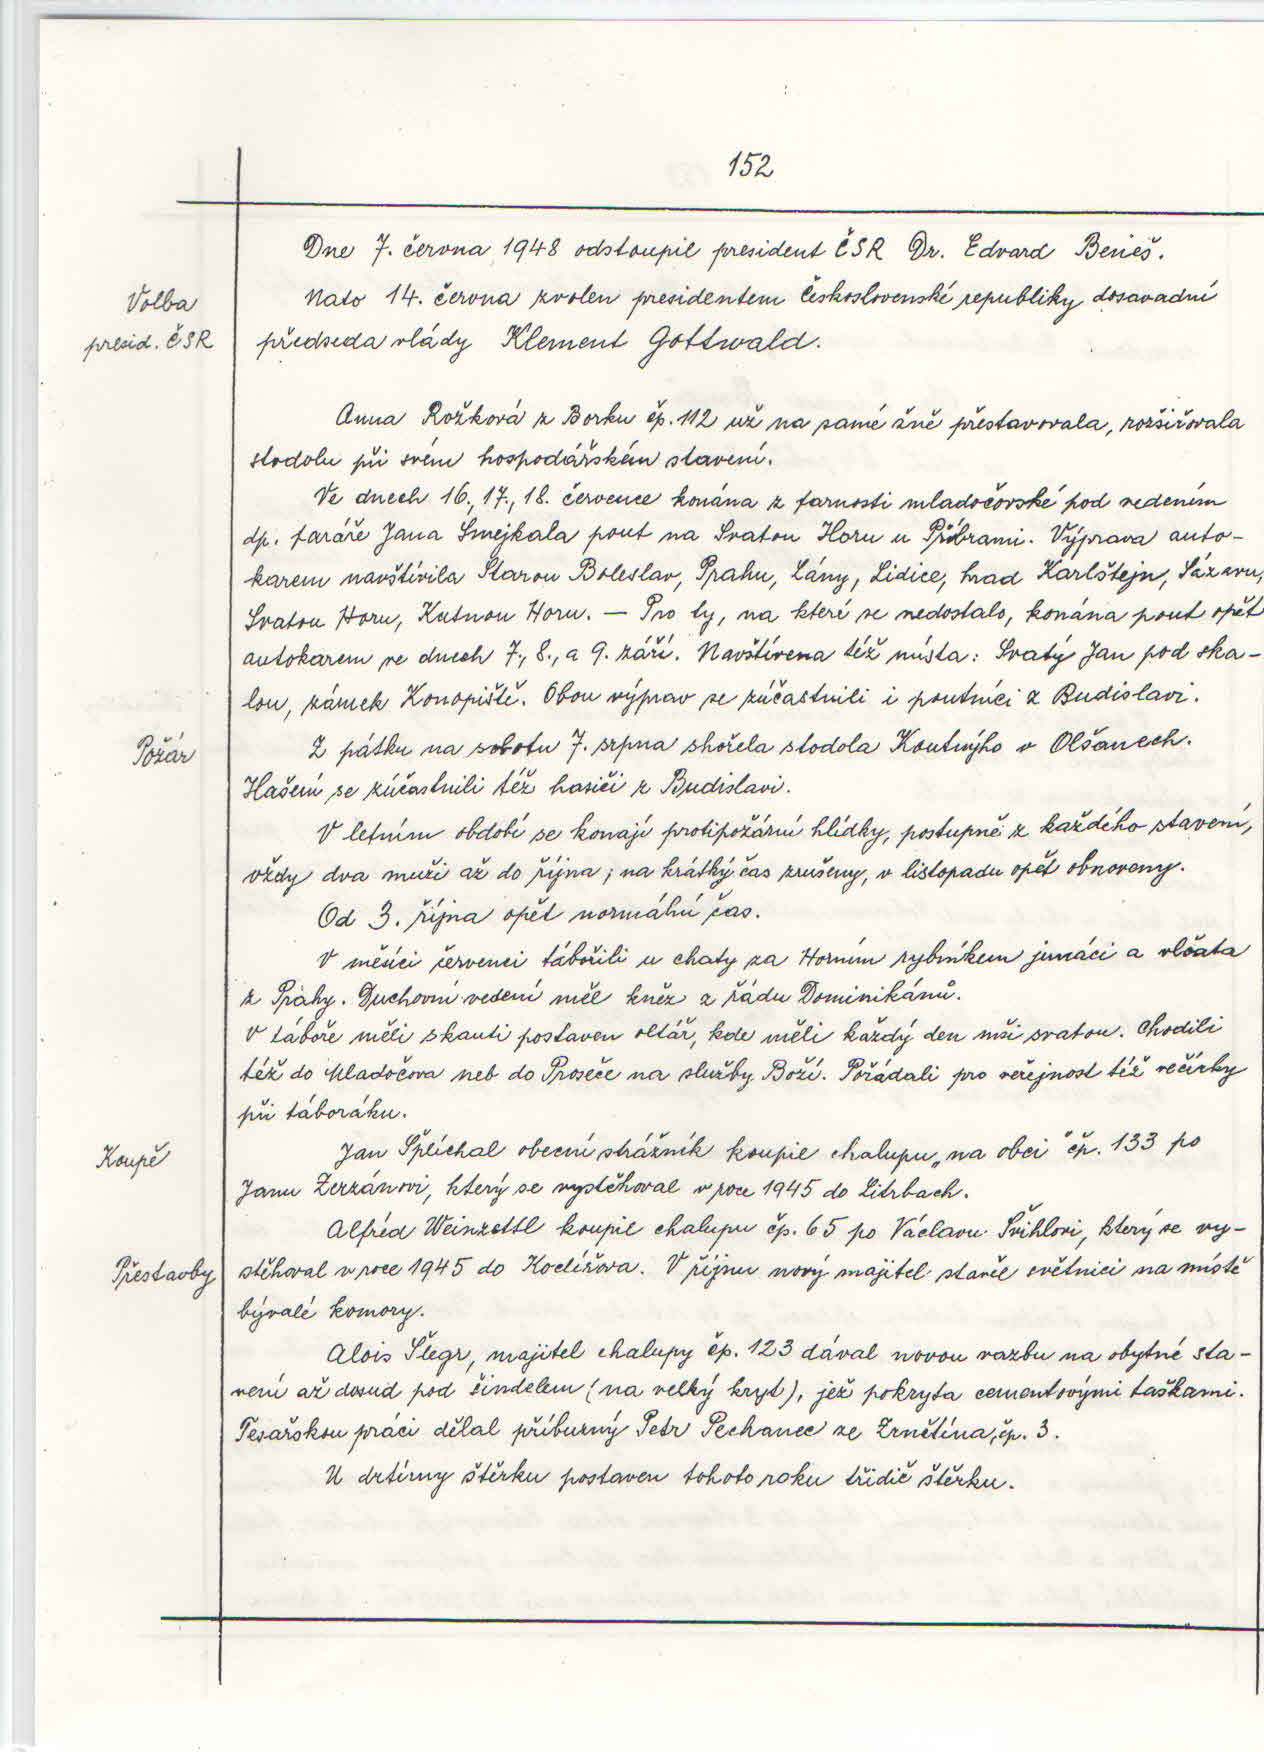 152
Dne 7. června 1948 odstoupil president ČSR Dr. Edvard Beneš.
Volba
presid. ČSR
Nato 14. června zvolen presidentem Československé republiky dosavadní
předseda vlády Klement Gottwald.
Anna Rožková z Borku čp. 112 už na samé žně přestavovala, rozšiřovala
stodolu při svém hospodářském stavení.
Ve dnech 16., 17., 18. července konána z farnosti mladočovské pod vedením
dp. faráře Jana Smejkala pout na Svatou Horu u Příbrami. Výprava auto-
karem navštívila Starou Boleslav, Prahu, Lány, Lidice, hrad Karlštejn, Sázavu,
Svatou Horu, Kutnou Horu. — Pro ty, na které se nedostalo, konána pout opět
autokarem ve dnech 7., 8., a 9. září. Navštívena též místa: Svatý Jan pod ska-
lou, zámek Konopiště. Obou výprav se zúčastnili i poutníci z Budislavi.
Požár
Z pátku na sobotu 7. srpna shořela stodola Koutnýho v Olšanech.
Hašení se zúčastnili též hasiči z Budislavi.
V letním období se konají protipožární hlídky, postupně z každého stavení,
vždy dva muži až do října; na krátký čas zrušeny, v listopadu opět obnoveny.
Od 3. října opět normální čas.
V měsíci červenci tábořili u chaty za Horním rybníkem junáci a vlčata
z Prahy. Duchovní vedení měl kněz z řádu Dominikánů.
V táboře měli skauti postaven oltář, kde měli každý den mši svatou. Chodili
též do Mladočova neb do Proseče na služby Boží. Pořádali pro veřejnost též večírky
při táboráku.
Koupě
Jan Šplíchal obecní strážník koupil chalupu „na obci" čp. 133 po
Janu Zerzánovi, který se vystěhoval v roce 1945 do Litrbach.
Alfréd Weinzettl koupil chalupu čp. 65 po Václavu Švihlovi, který se vy-
Přestavby
stěhoval v roce 1945 do Koclířova. V říjnu nový majitel stavěl světnici na místě
bývalé komory.
Alois Šlegr, majitel chalupy čp. 123 dával novou vazbu na obytné sta-
vení až dosud pod šindelem (na velký kryt), jež pokryta cementovými taškami.
Tesařskou práci dělal příbuzný Petr Pechanec ze Zrnětína, čp. 3.
U drtírny štěrku postaven tohoto roku třidič štěrku.